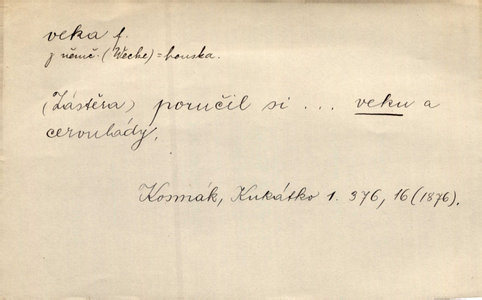 veka f.
z němč. (Wecke) = houska.
(Zástěra) poručil si ... veku a
cervulády.
Kosmák, Kukátko 1. 376, 16 (1876).